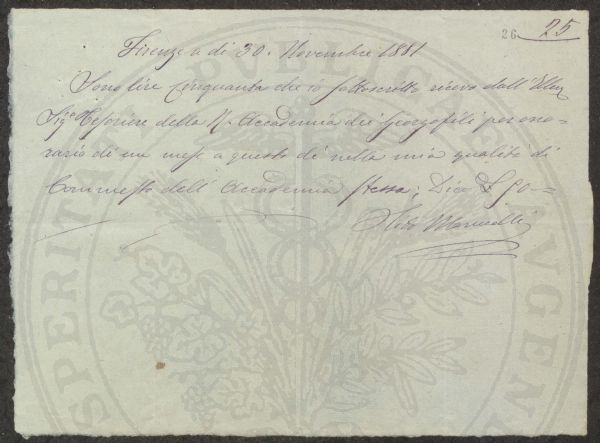 26 25
Firenze a di 30. Novembre 1881
Sono lire cinquanta che io sottoscritto ricevo dall'Illmo
Sigre Tesoriere della R. Accademia dei Georgofili per ono=
rario di un mese a questo dì nella mia qualità di
Commesso dell'Accademia stessa; Dico £ 50=
PROSPERITATI PUBLICAE AUGENDAE